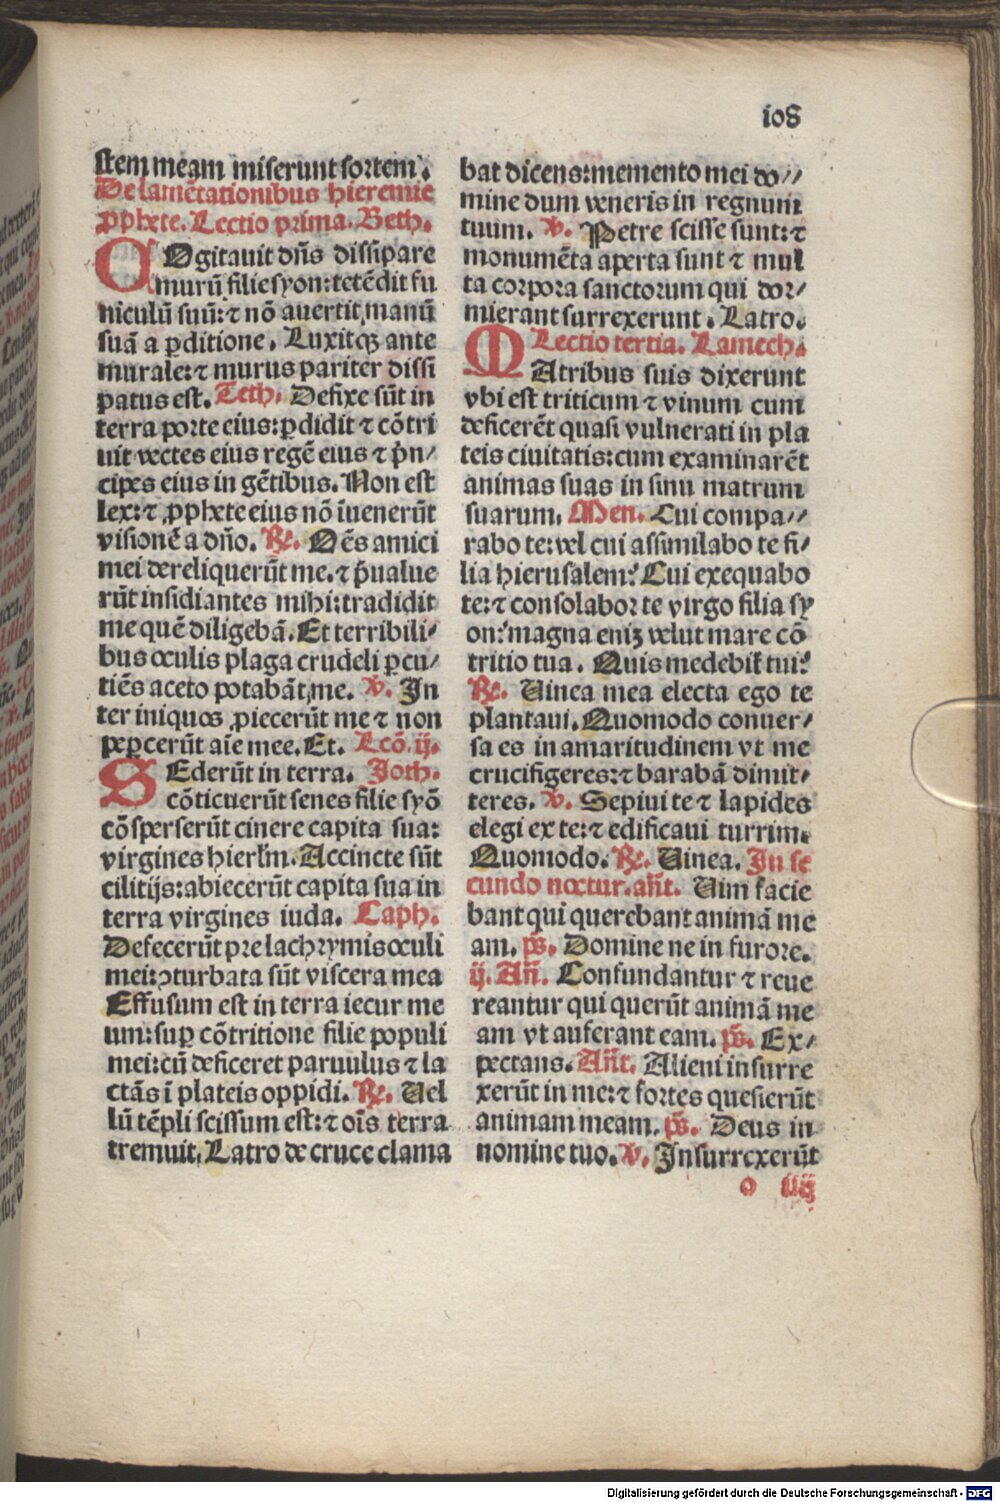 ios
stem meam miserunt sortem.
De lamētationibus hieremie
ꝓphete. Lectio prima. Beth.
COgitauit dn̄s dissipare
murū filie syon: tetēdit fu
niculū suū: ⁊ nō auertit manū
suā a ꝑditione. Luxitqꝫ ante
murale: ⁊ murus pariter dissi
patus est. Teth. Defixe sūt in
terra porte eius: ꝑdidit ⁊ cōtri
uit vectes eius regē eius ⁊ p̄n/
cipes eius in gētibus. Non est
lex: ⁊ ꝓphete eius nō īuenerūt
visionē a dn̄o. ℞. Oēs amici
mei dereliquerūt me. ⁊ p̄ualue
rūt insidiantes mihi: tradidit
me quē diligebā. Et terribili/
bus oculis plaga crudeli ꝑcu/
tiēs aceto potabāt me. ℣. In
ter iniquos ꝓiecerūt me ⁊ non
peꝑcerūt aīe mee. Et. Lcō. ij.
SEderūt in terra. Joth.
cōticuerūt senes filie syō
cōsperserūt cinere capita sua:
virgines hierl̄m. Accincte sūt
cilitijs: abiecerūt capita sua in
terra virgines iuda. Caph.
Defecerūt pre lachrymis oculi
mei: ꝯturbata sūt viscera mea
Effusum est in terra iecur me
um: suꝑ cōtritione filie populi
mei: cū deficeret paruulus ⁊ la
ctās ī plateis oppidi. ℞. Uel
lū tēpli scissum est: ⁊ oīs terra
tremuit. Latro de cruce clama
bat dicens: memento mei do//
mine dum veneris in regnum
tuum. ℣. Petre scisse sunt: ⁊
monumēta aperta sunt ⁊ mul
ta corpora sanctorum qui dor/
mierant surrexerunt. Latro.
Lectio tertia. Lamech.
MAtribus suis dixerunt
vbi est triticum ⁊ vinum cum
deficerēt quasi vulnerati in pla
teis ciuitatis: cum examinarēt
animas suas in sinu matrum
suarum. Men. Cui compa//
rabo te: vel cui assimilabo te fi/
lia hierusalem? Cui exequabo
te: ⁊ consolabor te virgo filia sy
on? magna enīꝫ velut mare cō
tritio tua. Quis medebit̄ tui?
℞. Uinea mea electa ego te
plantaui. Quomodo conuer/
sa es in amaritudinem vt me
crucifigeres: ⁊ barabā dimit/
teres. ℣. Sepiui te ⁊ lapides
elegi ex te: ⁊ edificaui turrim.
Quomodo. ℞. Uinea. In se
cundo noctur. an̄t. Uim facie
bant qui querebant animā me
am. ps̄. Domine ne in furore.
ij. An̄. Confundantur ⁊ reue
reantur qui querūt animā me
am vt auferant eam. ps̄. Ex/
pectans. An̄t. Alieni insurre
xerūt in me: ⁊ fortes quesierūt
animam meam. ps̄. Deus in
nomine tuo. ℣. Insurrexerūt
o iiij
Digitalisierung gefördert durch die Deutsche Forschungsgemeinschaft - DFG